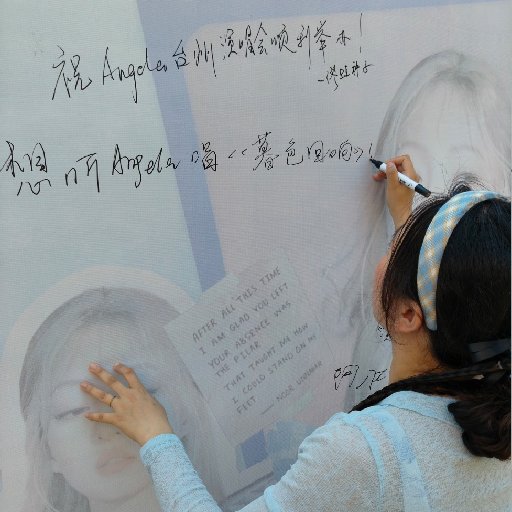 祝 Angela 台州演唱会顺利举办！
想听 Angela 唱《暮色回响》！
AFTER ALL THIS TIME
I AM GLAD YOU LEFT
YOUR ABSENCE WAS
THE PILAR
THAT TAUGHT ME HOW
I COULD STAND ON MY
FEET
— NOOR UNNAHAR